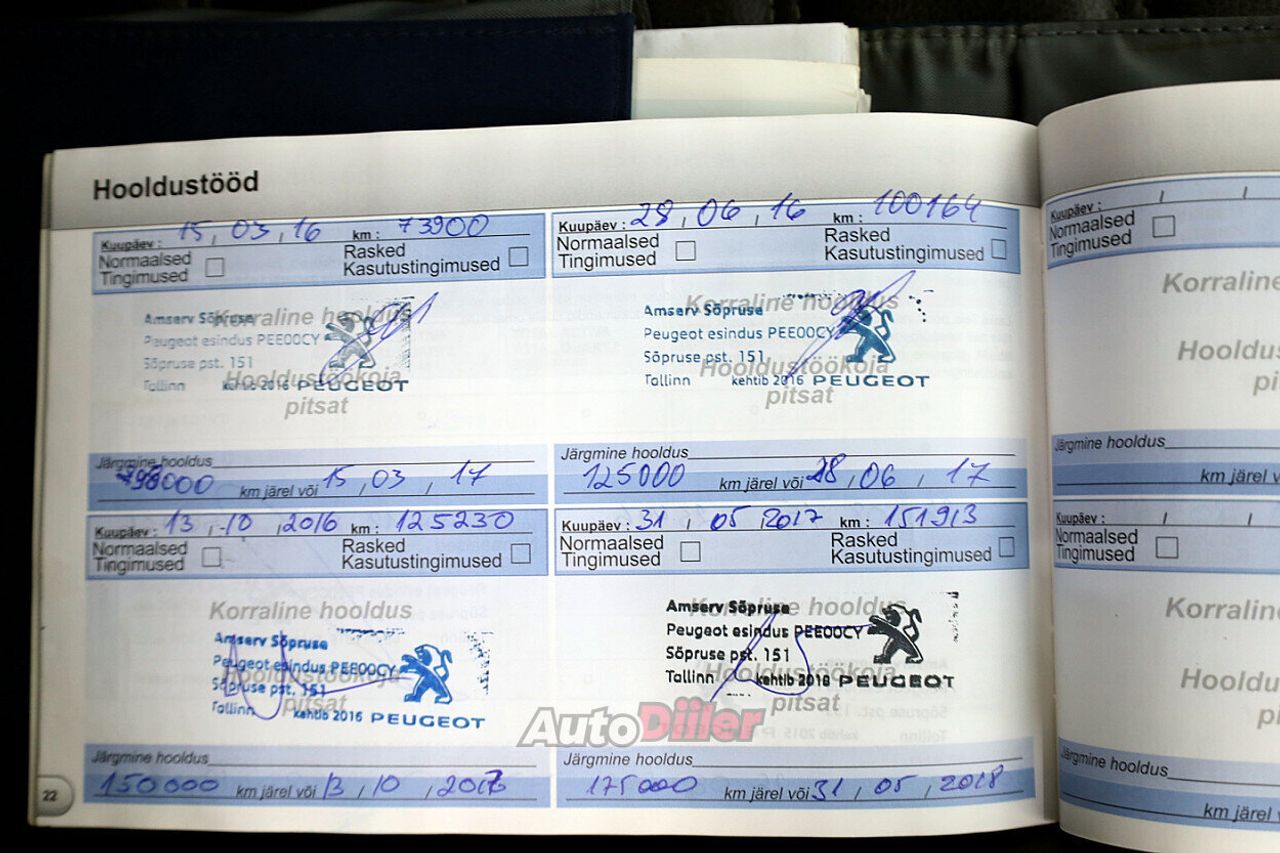 Hooldustööd
Kuupäev : 15, 03, 16 km : 73900
Normaalsed Tingimused
Rasked Kasutustingimused
Korraline hooldus
Amserv Sõpruse
Peugeot esindus PEE00CY
Sõpruse pst. 151
Tallinn kehtib 2016 PEUGEOT
Hooldustöökoja
pitsat
Järgmine hooldus
000 km järel või 15, 03, 17
Kuupäev : 28, 06, 16 km : 100164
Normaalsed Tingimused
Rasked Kasutustingimused
Korraline hooldus
Amserv Sõpruse
Peugeot esindus PEE00CY
Sõpruse pst. 151
Tallinn kehtib 2016 PEUGEOT
Hooldustöökoja
pitsat
Järgmine hooldus
125000 km järel või 28, 06, 17
Kuupäev : 13, 10, 2016 km : 125230
Normaalsed Tingimused
Rasked Kasutustingimused
Korraline hooldus
Amserv Sõpruse
Peugeot esindus PEE00CY
Sõpruse pst. 151
Tallinn kehtib 2016 PEUGEOT
Hooldustöökoja
pitsat
Järgmine hooldus
150000 km järel või 13, 10, 2017
Kuupäev : 31, 05, 2017 km : 151913
Normaalsed Tingimused
Rasked Kasutustingimused
Korraline hooldus
Amserv Sõpruse
Peugeot esindus PEE00CY
Sõpruse pst. 151
Tallinn kehtib 2018 PEUGEOT
Hooldustöökoja
pitsat
Järgmine hooldus
175000 km järel või 31, 05, 2018
22
AutoDiiler
Kuupäev :
Normaalsed
Tingimused
Korraline
Järgmine hooldus
km järel
Kuupäev :
Normaalsed
Tingimused
Korraline
Järgmine hooldus
km järel